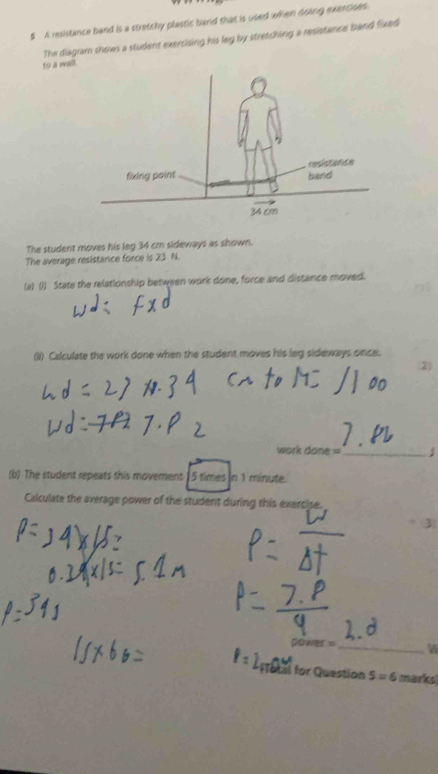 5 A resistance band is a stretchy plastic band that is used when doing exercises.
The diagram shows a student exercising his leg by stretching a resistance band fixed
to a wall.
fixing point
resistance
band
34 cm
The student moves his leg 34 cm sideways as shown.
The average resistance force is 23 N.
(a) (i) State the relationship between work done, force and distance moved.
wd = f x d
(ii) Calculate the work done when the student moves his leg sideways once.
(2)
wd = 23 x .34 cm to m = /100
wd = 7.82
work done = 7.82 J
(b) The student repeats this movement 15 times in 1 minute.
Calculate the average power of the student during this exercise.
(3)
P = 34 x 15 =
P = W
Δt
0.34 x 15 = 5.1 m
P = 7.8
4
P = 34s
power = 2.0 W
15 x 60 =
(Total for Question 5 = 6 marks)